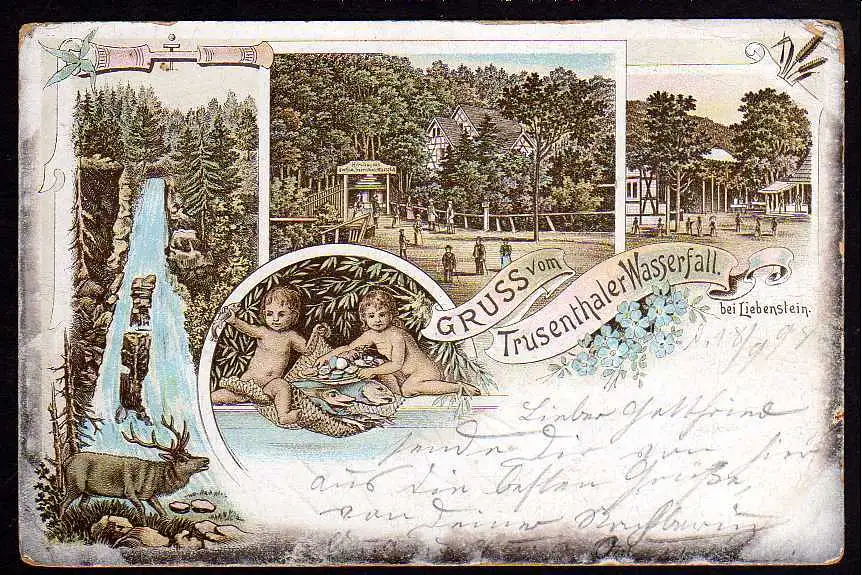 GRUSS vom
Trusenthaler Wasserfall.
bei Liebenstein.
18/9 97
Lieber Gottfried
sende Dir von hier
aus die besten Grüße,
von Deiner Nachbarin